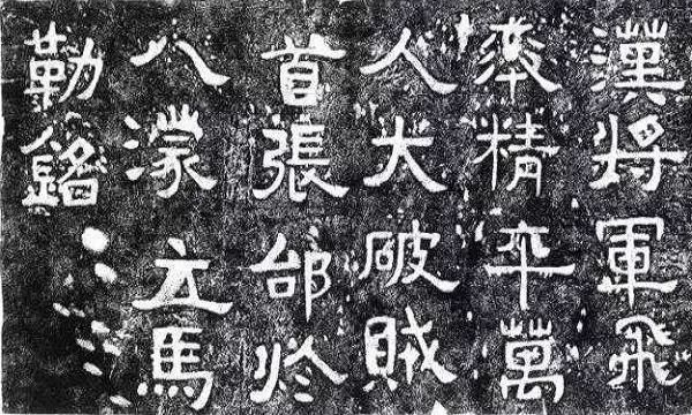 漢将軍飛
率精卒萬
人大破賊
首張郃於
八濛立馬
勒銘